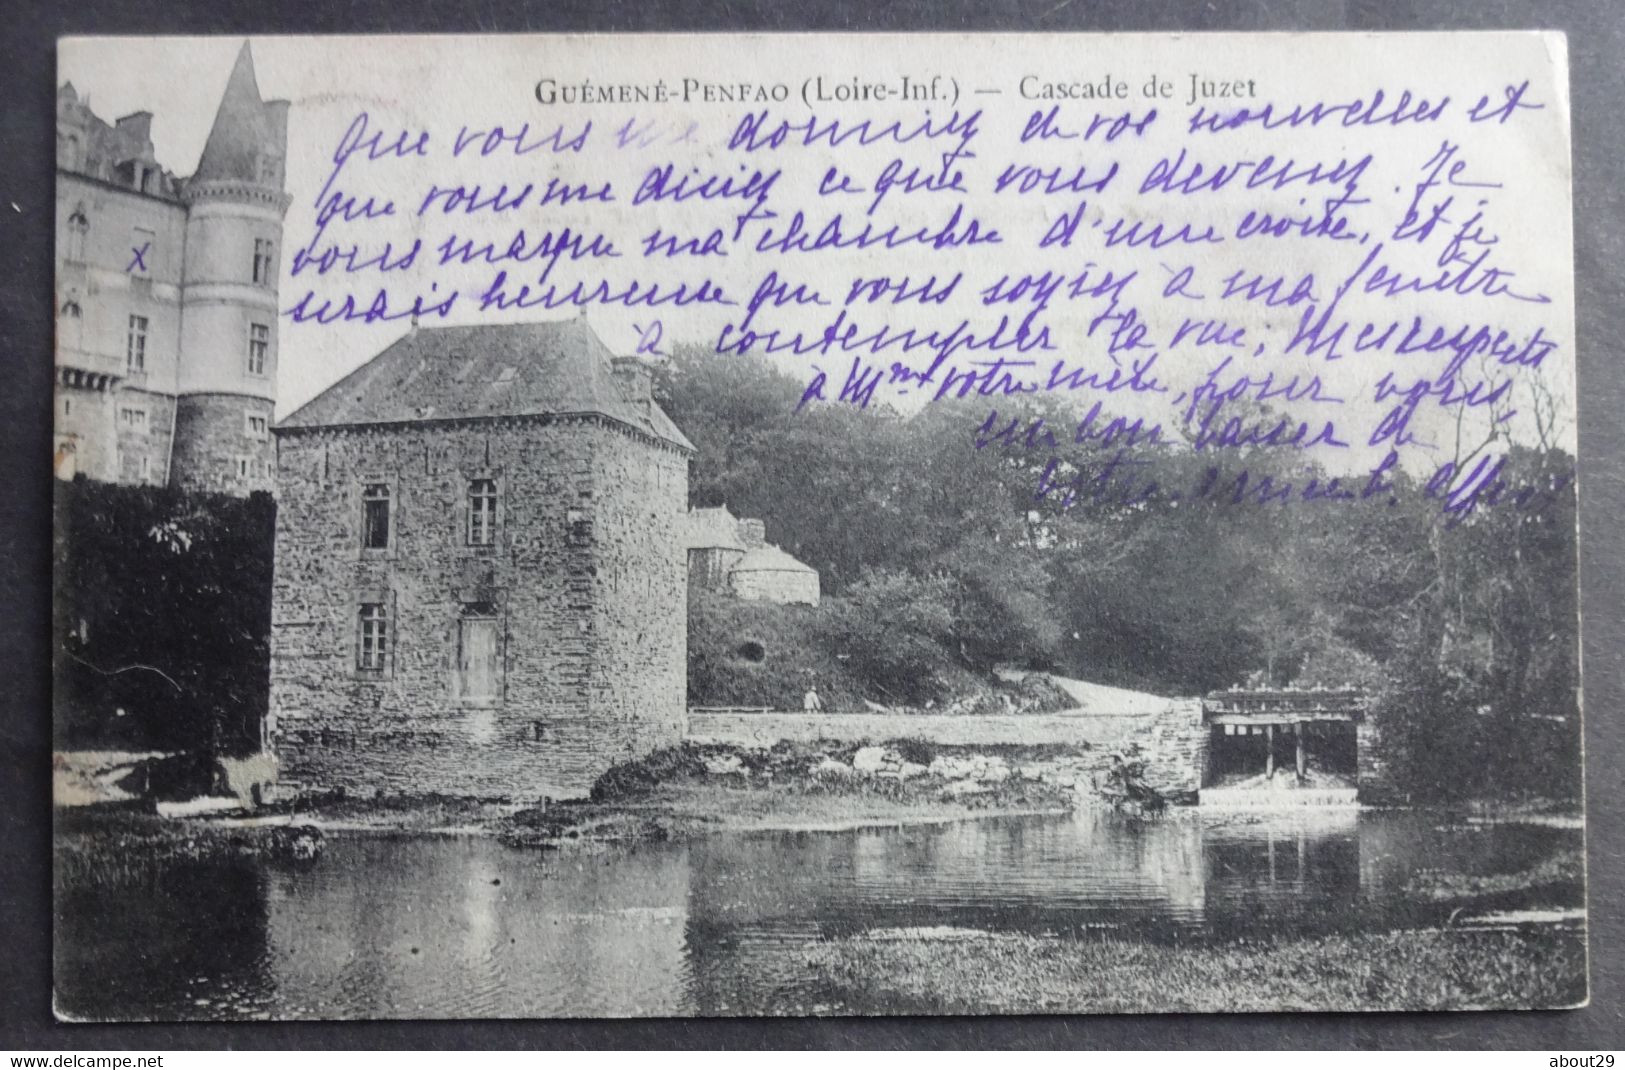 GUÉMENÉ-PENFAO (Loire-Inf.) — Cascade de Juzet
que vous me donniez de vos nouvelles et
que vous me disiez ce que vous devenez. Je
vous marque ma chambre d'une croite, et je
serais heureuse que vous soyiez à ma fenêtre
à contempler la vue, Mes respects
à Mme votre mère, pour vous,
un bon baiser de
votre
X
www.delcampe.net
about29